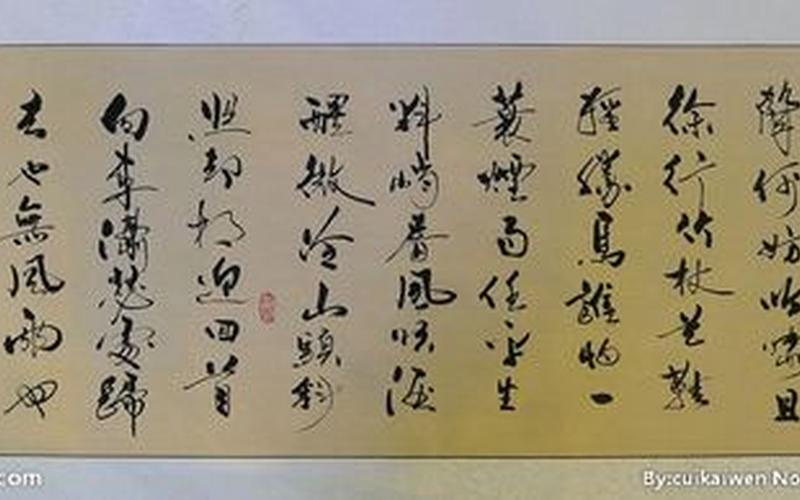 聲何妨吟嘯且
徐行竹杖芒鞋
輕勝馬誰怕一
蓑煙雨任平生
料峭春風吹酒
醒微冷山頭斜
照却相迎回首
向来瀟瑟處歸
去也無風雨也
.com
By:cuikaiwen No